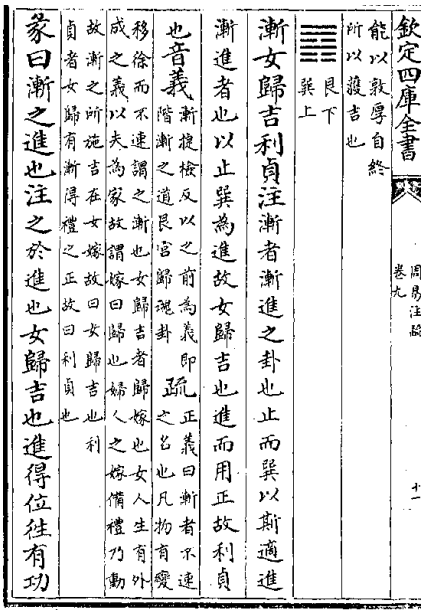 欽定四庫全書
周易注疏
卷九
十一
能以敦厚自終
所以獲吉也
艮下
巽上
漸女歸吉利貞注漸者漸進之卦也止而巽以斯適進
漸進者也以止巽為進故女歸吉也進而用正故利貞
也音義
漸捷檢反以之前為義即
階漸之道艮宮歸魂卦
疏
正義曰漸者不速
之名也凡物有變
移徐而不速謂之漸也女歸吉者歸嫁也女人生有外
成之義以夫為家故謂嫁曰歸也婦人之嫁備禮乃動
故漸之所施吉在女嫁故曰女歸吉也利
貞者女歸有漸得禮之正故曰利貞也
彖曰漸之進也注之於進也女歸吉也進得位徃有功